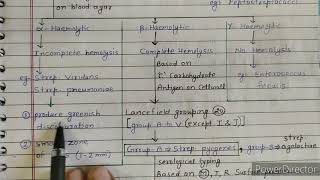 on blood agar
eg. Peptostreptococci
α- Haemolytic
β- Haemolytic
γ- Haemolytic
Incomplete hemolysis
Complete Hemolysis
No Hemolysis
eg. Strep. Viridans
Strep. pneumoniae
Based on
"C" Carbohydrate
Antigen on Cellwall
eg. Enterococcus
① produce greenish
Lancefield grouping 20
[group A to V (Except I & J)]
② zone
of (1-2 mm)
Group-A → Strep pyogenes,
group-B →
strep
agalactiae
serological typing
Based on M, T, R
PowerDirector